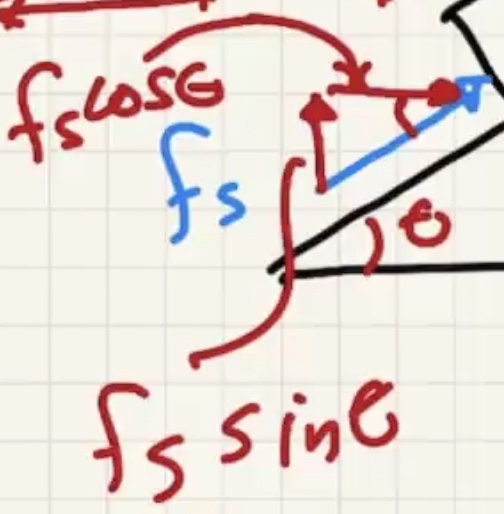 fs cosθ
fs
θ
fs sinθ